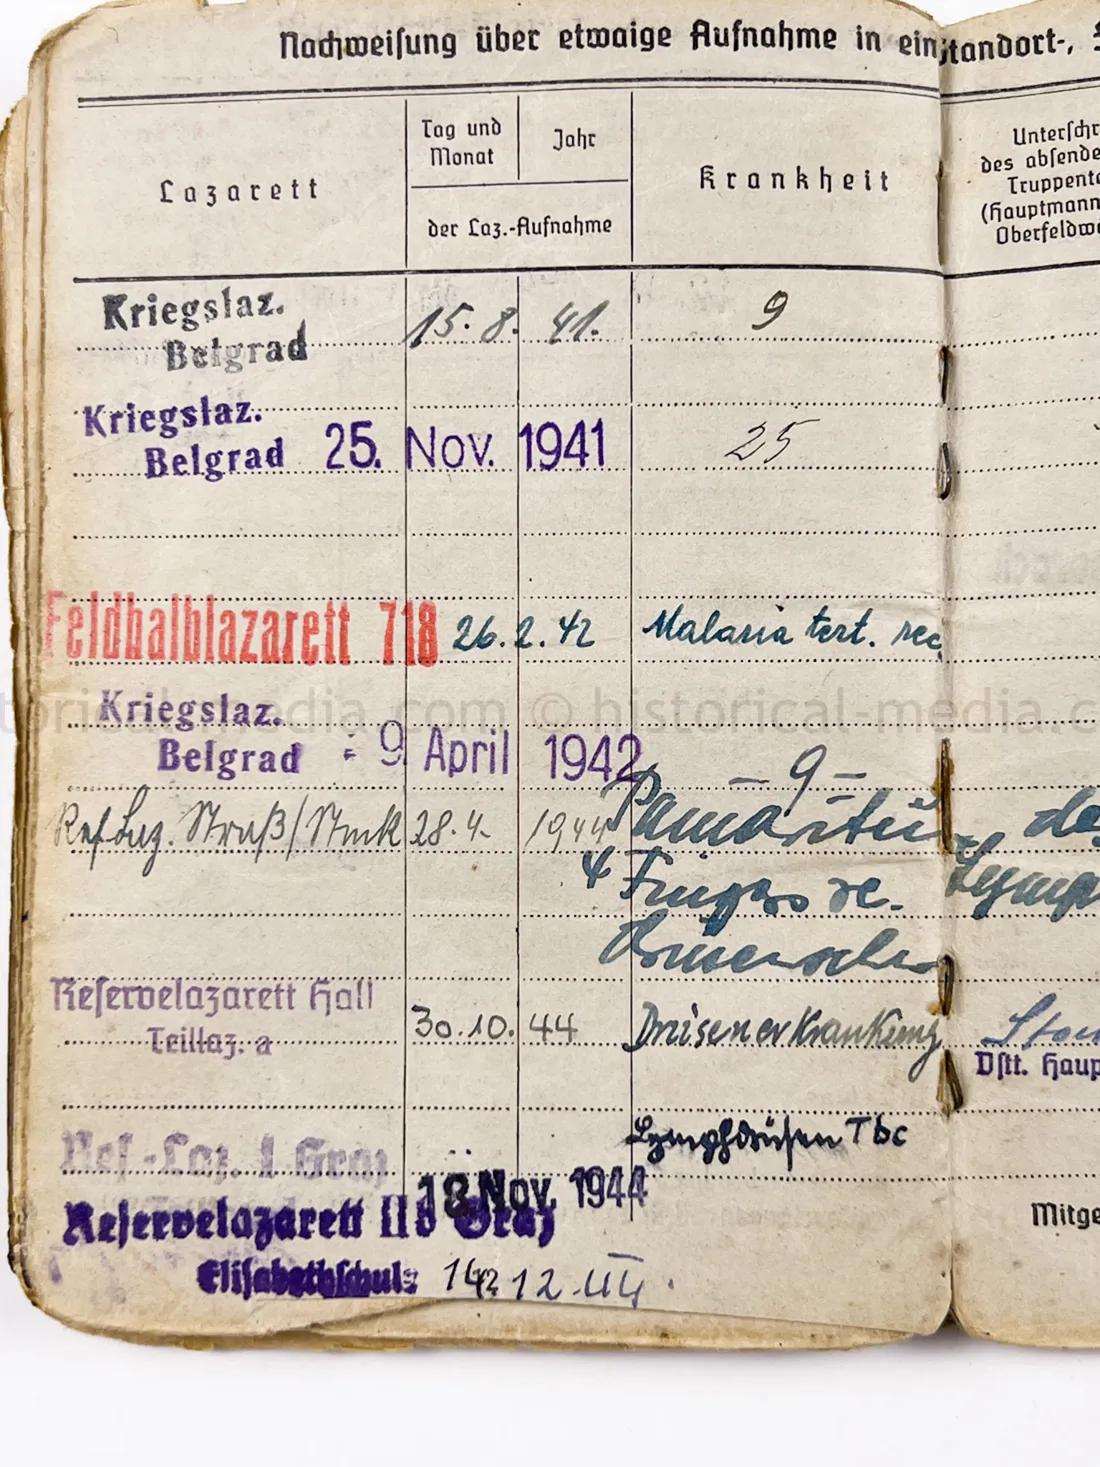 Nachweisung über etwaige Aufnahme in ein
Standort-,
Lazarett
Tag und
Monat
Jahr
der Laz.-Aufnahme
Krankheit
Unterschr
des absende
Truppente
(Hauptmann
Oberfeldwe
Kriegslaz.
Belgrad
15. 8. 41.
9
Kriegslaz.
Belgrad 25. Nov. 1941
25
Feldhalblazarett 718 26. 2. 42 Malaria tert. rec
Kriegslaz.
Belgrad - 9 April 1942
- 9 -
Res Laz. Straß/ 28. 4. 1944
4 Finger
Reservelazarett Hall
Teillaz. a
30. 10. 44 Drüsenerkrankung
Dstt. Haup
Lymphdrüsen Tbc
Res.-Laz. I Graz
18. Nov. 1944
Reservelazarett IIb Graz
Elisabethschule
12. 44.
Mitge
historical-media.com © historical-media.c